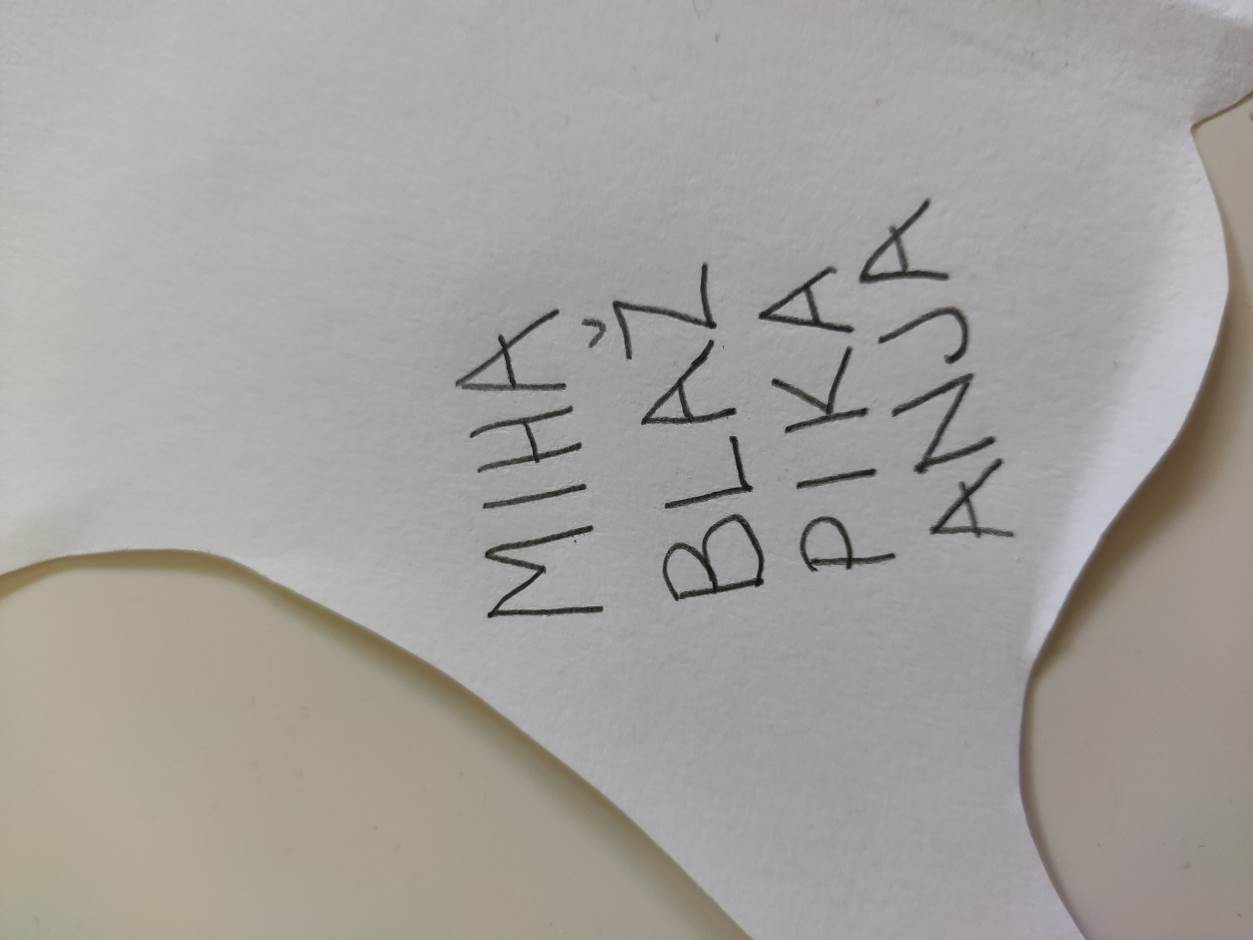 MIHA
BLAŽ
PIKA
ANJA